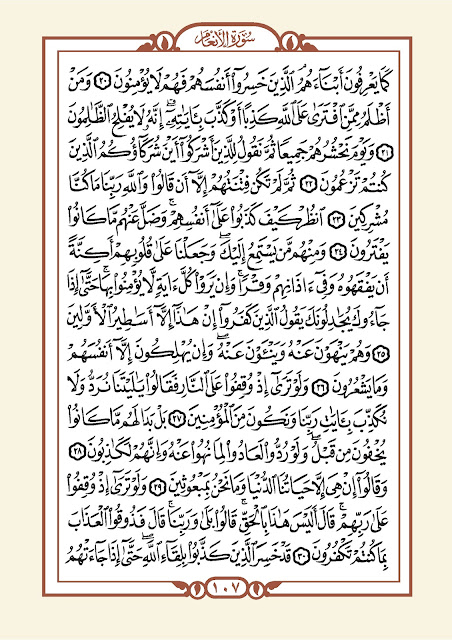 سُورَةُ الأَنْعَامِ
كَمَا يَعْرِفُونَ أَبْنَآءَهُمُ ٱلَّذِينَ خَسِرُوٓا۟ أَنفُسَهُمْ فَهُمْ لَا يُؤْمِنُونَ ٢٠ وَمَنْ
أَظْلَمُ مِمَّنِ ٱفْتَرَىٰ عَلَى ٱللَّهِ كَذِبًا أَوْ كَذَّبَ بِـَٔايَـٰتِهِۦٓ ۗ إِنَّهُۥ لَا يُفْلِحُ ٱلظَّـٰلِمُونَ
٢١ وَيَوْمَ نَحْشُرُهُمْ جَمِيعًا ثُمَّ نَقُولُ لِلَّذِينَ أَشْرَكُوٓا۟ أَيْنَ شُرَكَآؤُكُمُ ٱلَّذِينَ
كُنتُمْ تَزْعُمُونَ ٢٢ ثُمَّ لَمْ تَكُن فِتْنَتُهُمْ إِلَّآ أَن قَالُوا۟ وَٱللَّهِ رَبِّنَا مَا كُنَّا
مُشْرِكِينَ ٢٣ ٱنظُرْ كَيْفَ كَذَبُوا۟ عَلَىٰٓ أَنفُسِهِمْ ۚ وَضَلَّ عَنْهُم مَّا كَانُوا۟
يَفْتَرُونَ ٢٤ وَمِنْهُم مَّن يَسْتَمِعُ إِلَيْكَ ۖ وَجَعَلْنَا عَلَىٰ قُلُوبِهِمْ أَكِنَّةً
أَن يَفْقَهُوهُ وَفِىٓ ءَاذَانِهِمْ وَقْرًا ۚ وَإِن يَرَوْا۟ كُلَّ ءَايَةٍ لَّا يُؤْمِنُوا۟ بِهَا ۚ حَتَّىٰٓ إِذَا
جَآءُوكَ يُجَـٰدِلُونَكَ يَقُولُ ٱلَّذِينَ كَفَرُوٓا۟ إِنْ هَـٰذَآ إِلَّآ أَسَـٰطِيرُ ٱلْأَوَّلِينَ
٢٥ وَهُمْ يَنْهَوْنَ عَنْهُ وَيَنْـَٔوْنَ عَنْهُ ۖ وَإِن يُهْلِكُونَ إِلَّآ أَنفُسَهُمْ
وَمَا يَشْعُرُونَ ٢٦ وَلَوْ تَرَىٰٓ إِذْ وُقِفُوا۟ عَلَى ٱلنَّارِ فَقَالُوا۟ يَـٰلَيْتَنَا نُرَدُّ وَلَا
نُكَذِّبَ بِـَٔايَـٰتِ رَبِّنَا وَنَكُونَ مِنَ ٱلْمُؤْمِنِينَ ٢٧ بَلْ بَدَا لَهُم مَّا كَانُوا۟
يُخْفُونَ مِن قَبْلُ ۖ وَلَوْ رُدُّوا۟ لَعَادُوا۟ لِمَا نُهُوا۟ عَنْهُ وَإِنَّهُمْ لَكَـٰذِبُونَ ٢٨
وَقَالُوٓا۟ إِنْ هِىَ إِلَّا حَيَاتُنَا ٱلدُّنْيَا وَمَا نَحْنُ بِمَبْعُوثِينَ ٢٩ وَلَوْ تَرَىٰٓ إِذْ وُقِفُوا۟
عَلَىٰ رَبِّهِمْ ۚ قَالَ أَلَيْسَ هَـٰذَا بِٱلْحَقِّ ۚ قَالُوا۟ بَلَىٰ وَرَبِّنَا ۚ قَالَ فَذُوقُوا۟ ٱلْعَذَابَ
بِمَا كُنتُمْ تَكْفُرُونَ ٣٠ قَدْ خَسِرَ ٱلَّذِينَ كَذَّبُوا۟ بِلِقَآءِ ٱللَّهِ ۖ حَتَّىٰٓ إِذَا جَآءَتْهُمُ
١٠٧